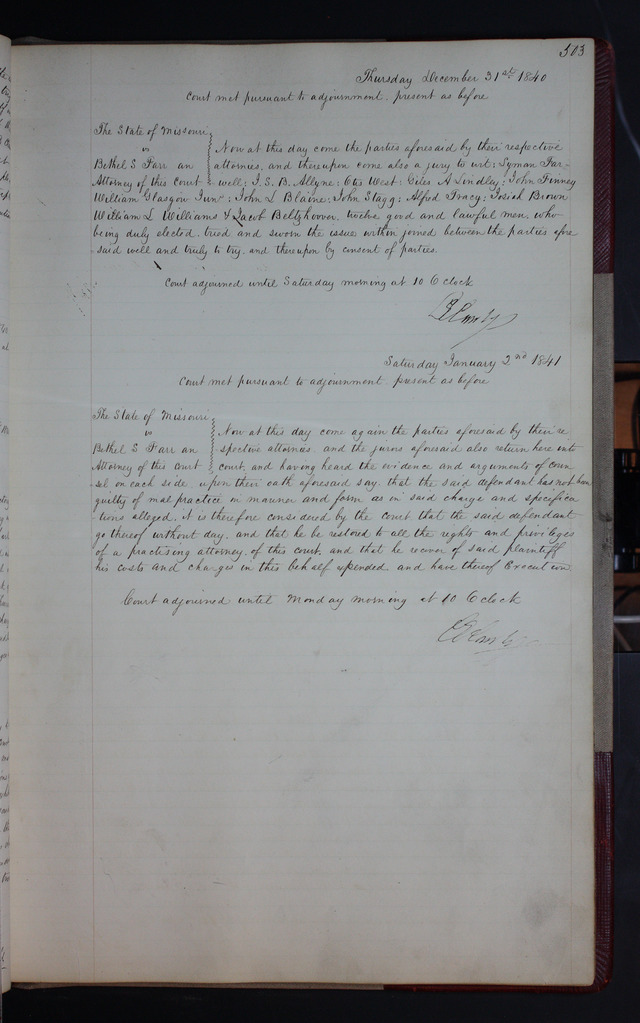 503
Thursday December 31st 1840
Court met pursuant to adjournment. present as before
The State of Missouri
vs
Bethel S Farr an
Attorney of this Court
Now at this day come the parties aforesaid by their respective
attornies, and thereupon come also a jury to wit: Lyman Far-
-well; I. S. B. Allyne; Otis West; Giles A Lindley; John Finney
William Glasgow Junr; John L Blaine; John Stagg; Alfred Tracy; Josiah Brown
William L Williams & Jacob Beltzhoover, twelve good and lawful men, who
being duly elected, tried and sworn the issue within joined between the parties afore
-said well and truly to try, and thereupon by consent of parties.
Court adjourned until Saturday morning at 10 O clock
Saturday January 2nd 1841
Court met pursuant to adjournment present as before
The State of Missouri
vs
Bethel S Farr an
Attorney of this Court
Now at this day come again the parties aforesaid by their re
spective attornies, and the jurors aforesaid also return here into
court, and having heard the evidence and arguments of coun
sel on each side, upon their oath aforesaid say, that the said defendant has not been
guilty of mal practice in manner and form as in said charge and specifica
-tions alleged. it is therefore considered by the court that the said defendant
go thereof without day, and that he be restored to all the rights and privileges
of a practising attorney, of this court, and that he recover of said plaintiff
his costs and charges in this behalf expended and have thereof Execution
Court adjourned until Monday morning at 10 O clock